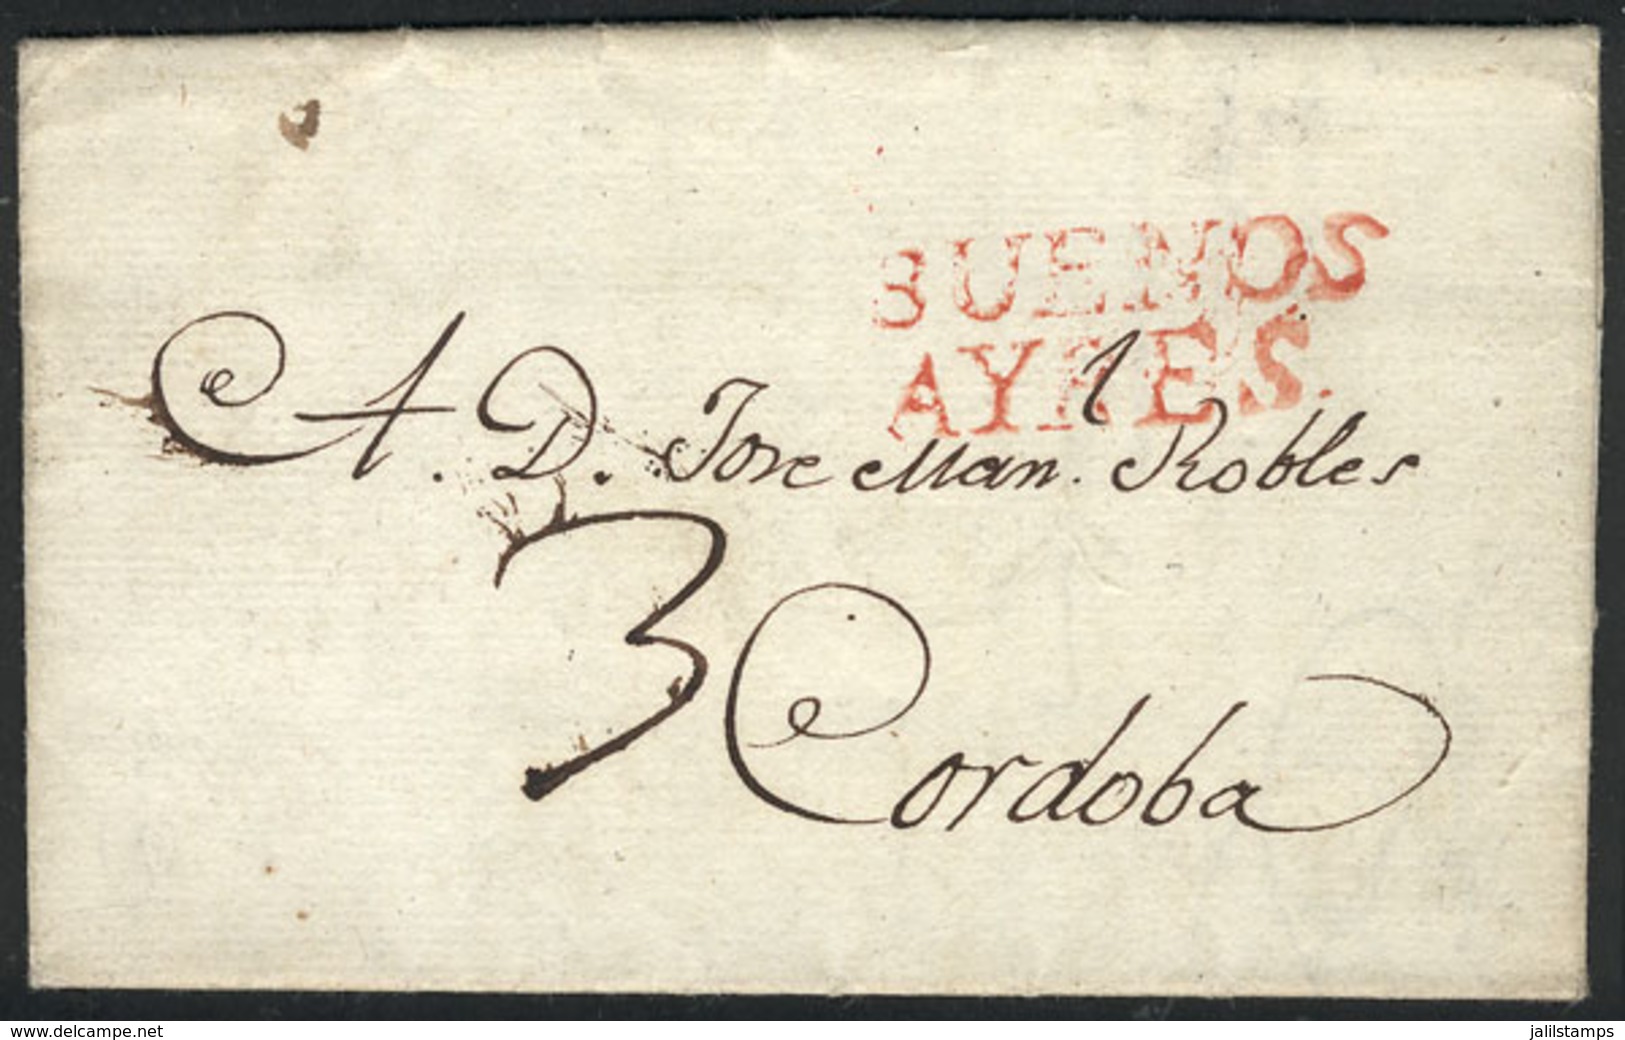 BUENOS
AYRES.
A. D. Jose Man. l Robles
3
Cordoba
www.delcampe.net
jalilstamps